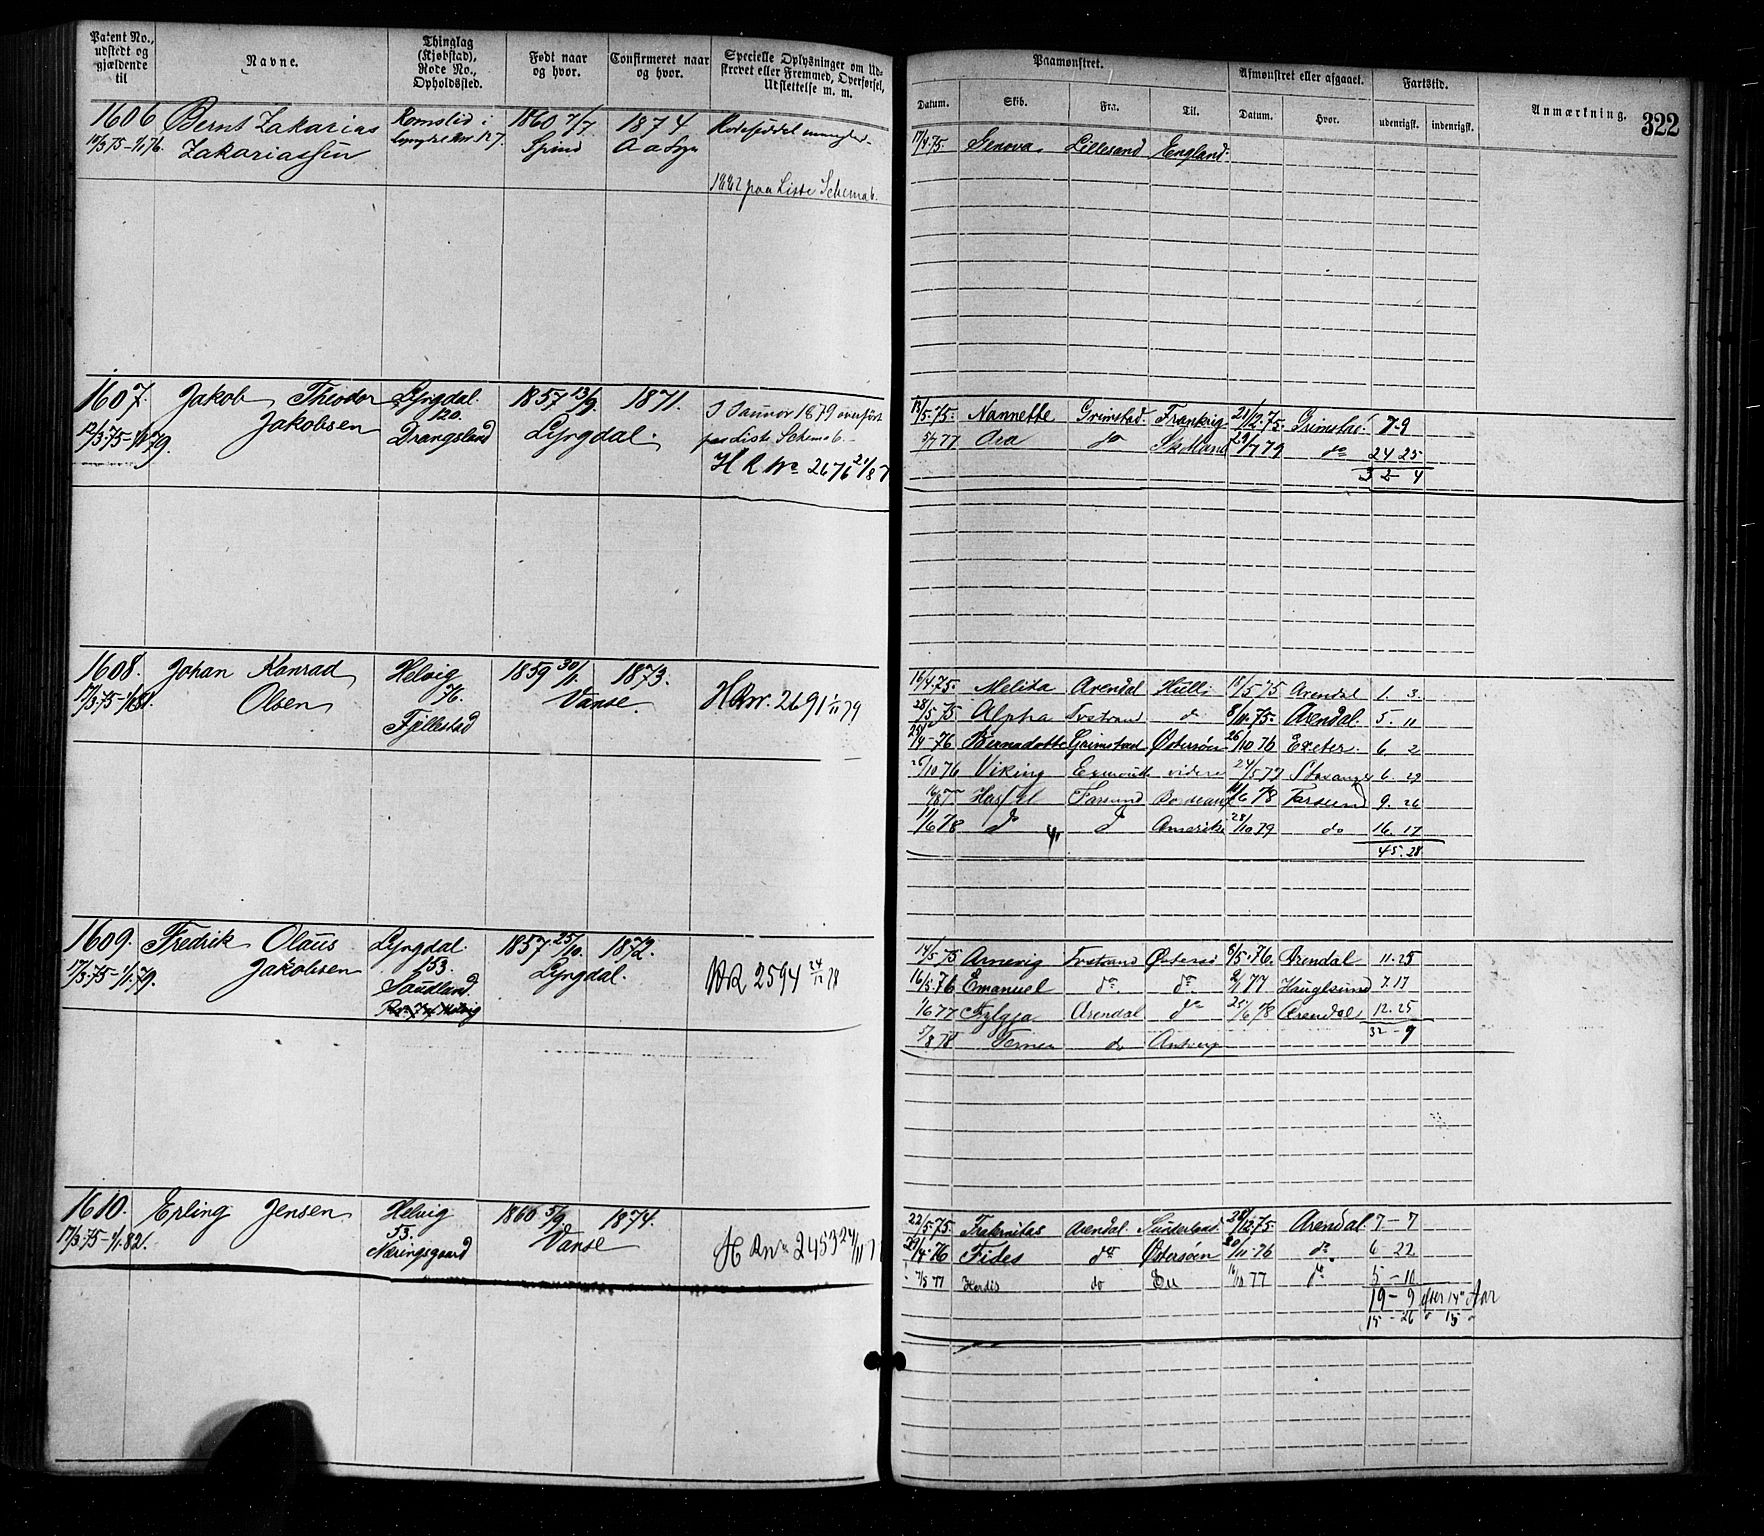 Patent No., udstedt og gjældende til
Navne.
Thinglag (Kjøbstad), Rode No., Opholdssted.
Født naar og hvor.
Confirmeret naar og hvor.
Specielle Oplysninger om Udskrevet eller Fremmed, Overførsel, Udslettelse m. m.
Paamønstret.
Afmønstret eller afgaaet.
Fartstid.
Anmærkning.
322
Datum. Skib. Fra. Til. Datum. Hvor. udenrigsk. indenrigsk.
1606 Bernt Zakarias Romslid i 1860 7/7 1874 Rodeseddel mangler
Zakariassen Spind
1882 paa Liste Schema 6.
17/4 75. Genova Lillesand England
1607. Jakob Theodor Lyngdal 1857 13/9 1871.
Jakobsen 120. Lyngdal.
12/3 75 - 1/1 79. Drangsland
I Januar 1879 overført
paa Liste Schema 6.
H R No 2676
13/5 75. Nannette Grimstad. Frankrig 21/12 75. Grimstad 7-9
5/7 77 Ara do Skotland 29/7 79 do 24 25
32-4
1608. Johan Konrad Helvig 1859 30/1 1873.
Olsen 76. Vanse
Fjellestad
H R nr. 2691 1/11 79
16/4 75. Melita Arendal Hull 15/5 75 Arendal 1. 3
28/5 75 Alpha Tvestrand do 8/11 75. Arendal. 5. 11
25/4-76 Bernadotte Grimstad Østersøen 26/10 76 Exeter. 6 2
Viking Exmouth videre Stavanger 6. 29
Farsund Bordeaux 78 Farsund 9. 26
11/6 78 do do Amerika 28/10 79 do 16. 17
45. 28
1609. Fredrik Olaus Lyngdal 1857 25/10. 1872.
Jakobsen 153. Lyngdal.
17/3 75 - 1/1. 79.
HR 2594 24/12 78
14/5 75 Arnevig Tvestrand Østersø 8/5. 76. Arendal 11. 25
16/5 76 Emanuel do do 77 Haugesund 7. 17
1/6 77 Fylgja Arendal do 25/6 78 Arendal 12. 25
32 - 9
5/8 78 Terner do Antwerp
1610. Erling Jensen Helvig 1860 5/9 1874.
17/3 75 - 1/1. 82. 53. Vanse
Næringsgaard
H R No 2453
22/5 75 Fraternitas Arendal Sunderland 28/12 75 Arendal 7-7
29/4. 76 Fides do Østersøen 20/11. 76 do 6-22
7/5 77 Herdis do Eu 77 do 5-10
19-9 efter 14 Aar
15-26 " 15 "